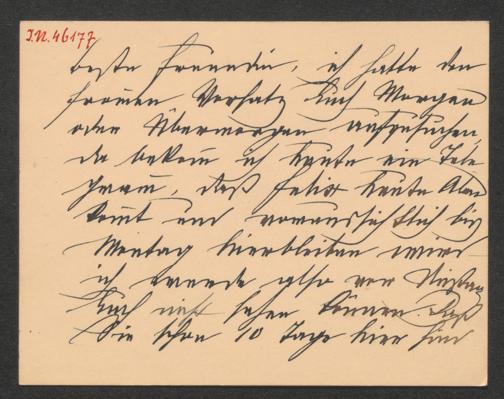 I.N. 46177
beste Freundin, ich hatte den
frommen Vorsatz Euch Morgen
oder Übermorgen aufzusuchen,
da bekom ich heute ein Tele-
gramm, daß Felix heute Abend
kommt und voraussichtlich bis
Montag hierbleiben wird
ich werde also vor Dienstag
Euch nicht sehen können. Daß
Sie schon 10 Tage hier sind